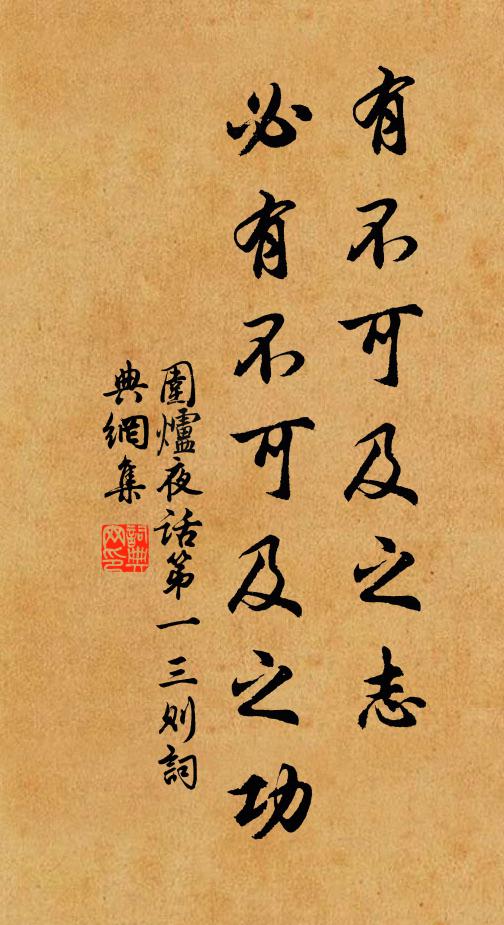 有不可及之志
必有不可及之功
圍爐夜话第一三则詞
典網集
詞典
网印